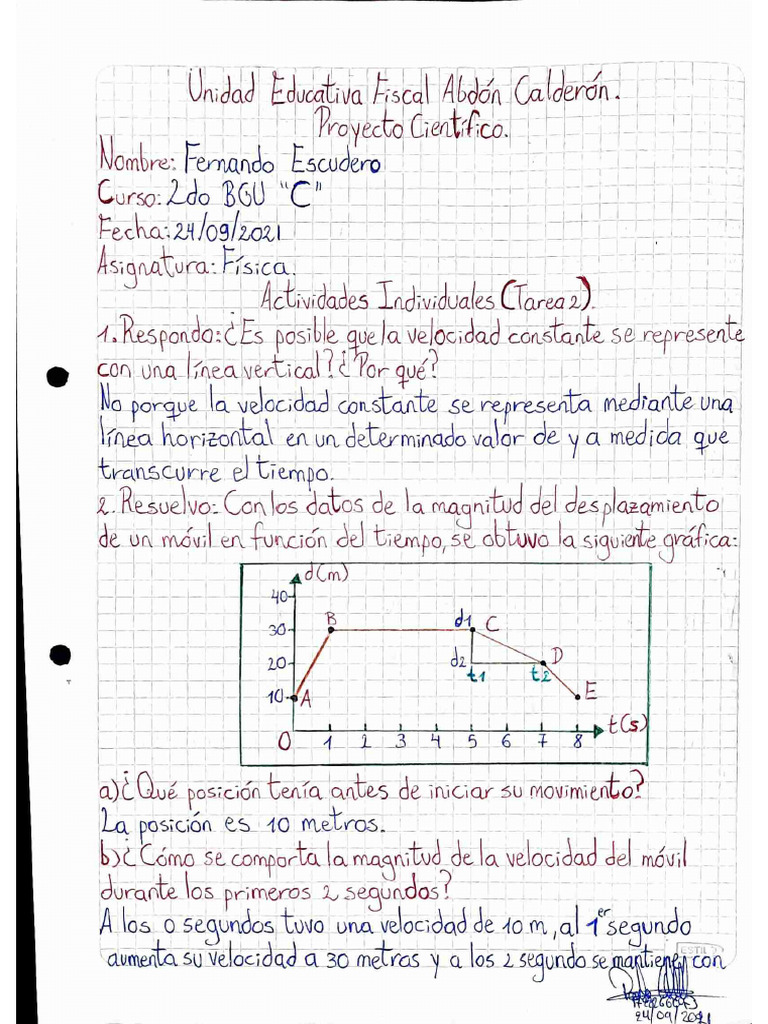 Unidad Educativa Fiscal Abdón Calderón.
Proyecto Científico.
Nombre: Fernando Escudero
Curso: 2do BGU "C"
Fecha: 24/09/2021
Asignatura: Física.
Actividades Individuales (Tarea 2)
1. Respondo: ¿Es posible que la velocidad constante se represente
con una línea vertical? ¿Por qué?
No porque la velocidad constante se representa mediante una
línea horizontal en un determinado valor de y a medida que
transcurre el tiempo.
2. Resuelvo: Con los datos de la magnitud del desplazamiento
de un móvil en función del tiempo, se obtuvo la siguiente gráfica:
d(m)
40
B
30
d1 C
20
d2
t1
t2
D
10
A
E
t(s)
0 1 2 3 4 5 6 7 8
a) ¿Qué posición tenía antes de iniciar su movimiento?
La posición es 10 metros.
b) ¿Cómo se comporta la magnitud de la velocidad del móvil
durante los primeros 2 segundos?
A los 0 segundos tuvo una velocidad de 10 m, al 1er segundo
aumenta su velocidad a 30 metros y a los 2 segundo se mantiene con
24/09/2021